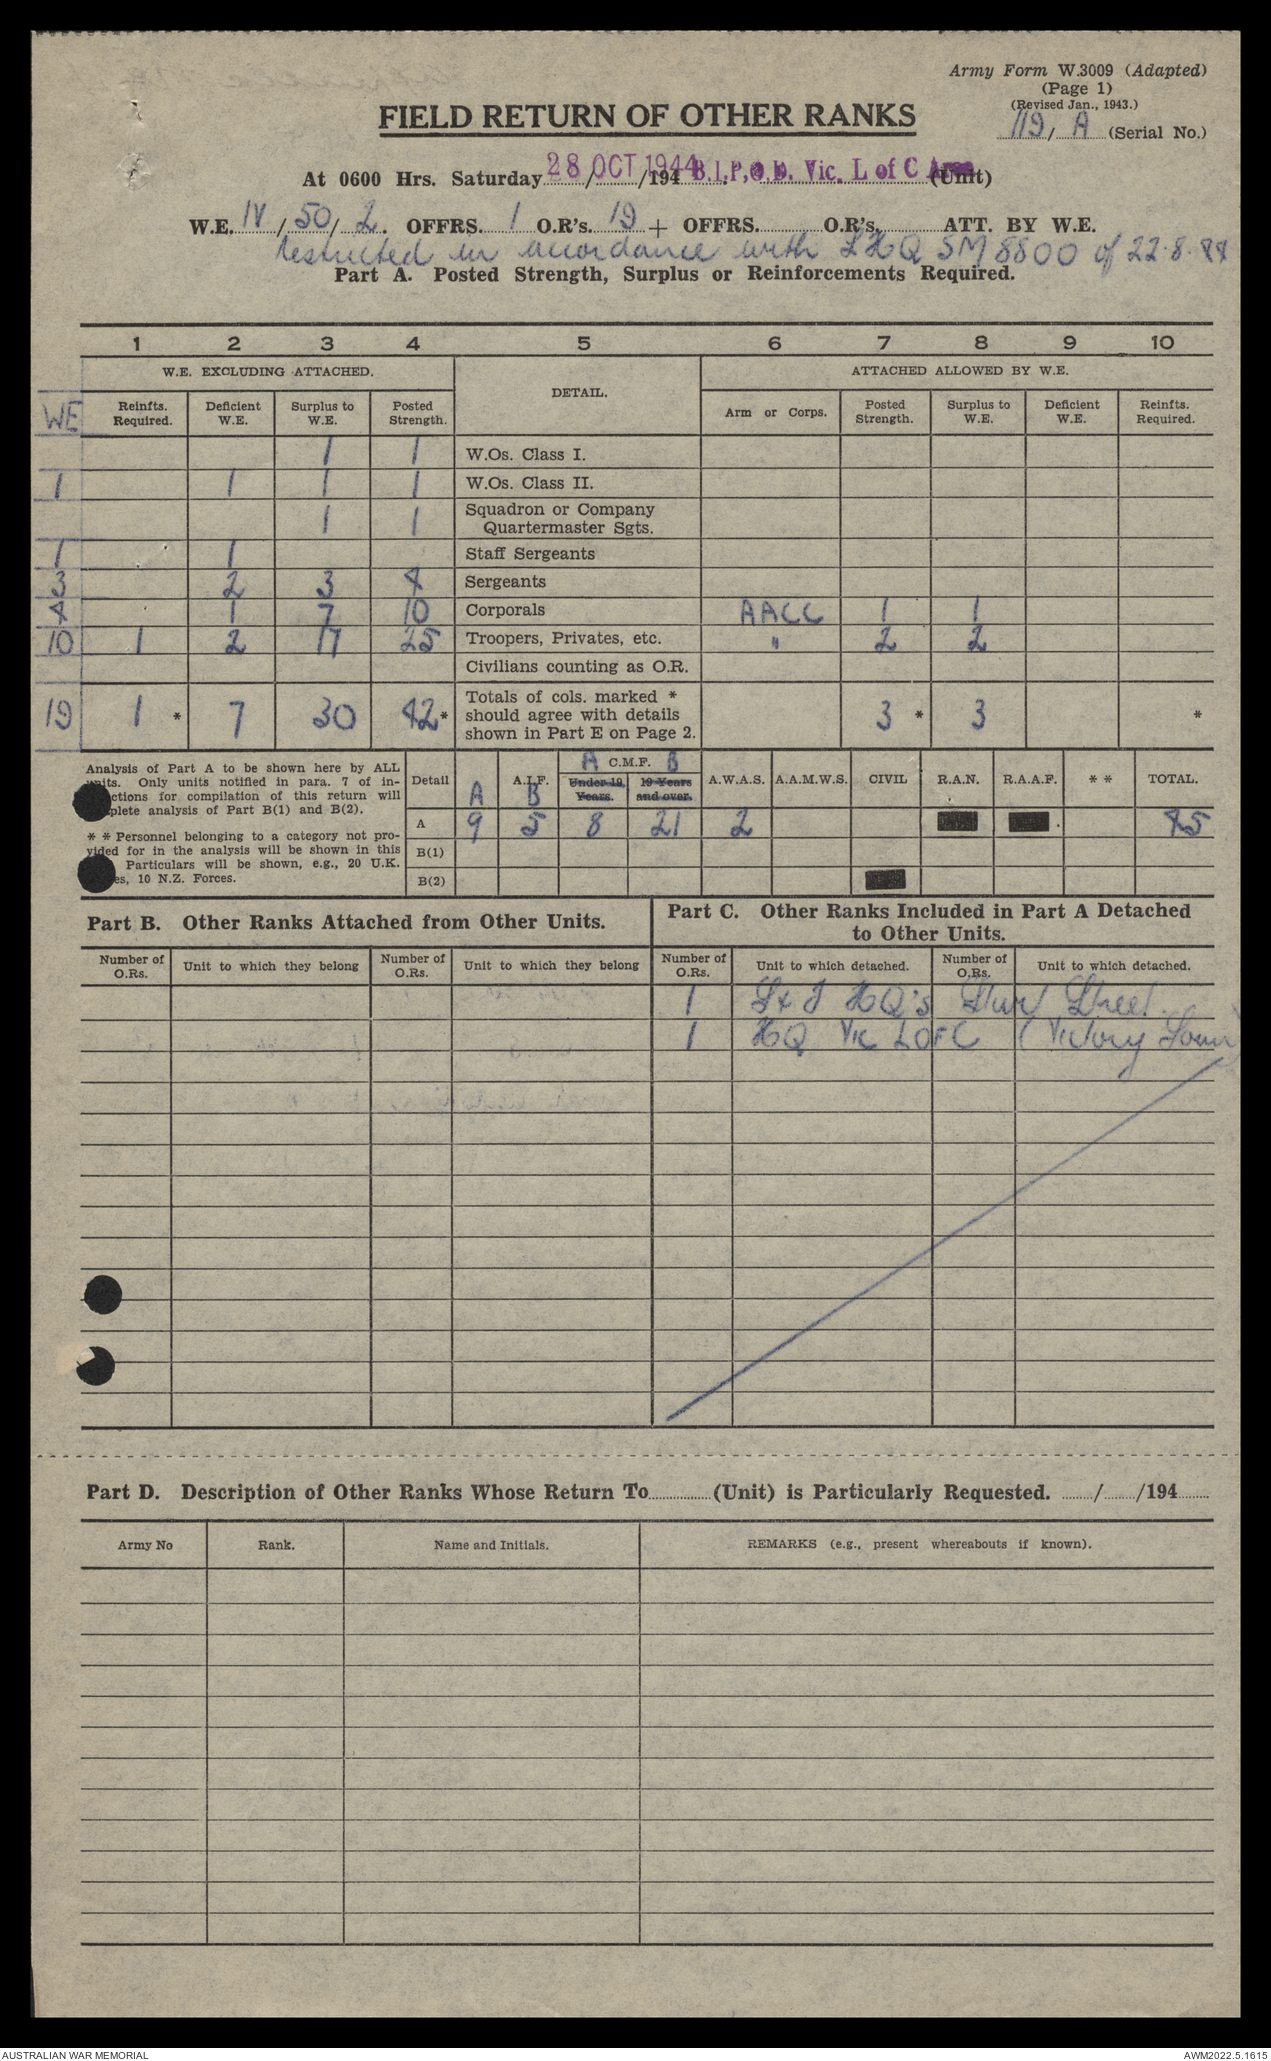 Army Form W.3009 (Adapted)
(Page 1)
(Revised Jan., 1943.)
119/ A (Serial No.)
FIELD RETURN OF OTHER RANKS
At 0600 Hrs. Saturday 28 OCT 1944 /194 B.I.P.O.D. Vic. L of C Area (Unit)
W.E. IV / 50 / 2. OFFRS. 1 O.R's. 19 + OFFRS. O.R's. ATT. BY W.E.
restricted in accordance with LHQ SM 8800 of 22.8.44
Part A. Posted Strength, Surplus or Reinforcements Required.
1 2 3 4 5 6 7 8 9 10
W.E. EXCLUDING ATTACHED. DETAIL. ATTACHED ALLOWED BY W.E.
WE Reinfts. Required. Deficient W.E. Surplus to W.E. Posted Strength. Arm or Corps. Posted Strength. Surplus to W.E. Deficient W.E. Reinfts. Required.
1 1 W.Os. Class I.
1 1 1 1 W.Os. Class II.
1 1 Squadron or Company Quartermaster Sgts.
1 1 Staff Sergeants
3 2 3 4 Sergeants
4 1 7 10 Corporals AACC 1 1
10 1 2 17 25 Troopers, Privates, etc. " 2 2
Civilians counting as O.R.
19 1 * 7 30 42 * Totals of cols. marked * should agree with details shown in Part E on Page 2. 3 * 3 *
Analysis of Part A to be shown here by ALL
units. Only units notified in para. 7 of in-
ctions for compilation of this return will
plete analysis of Part B(1) and B(2).
* * Personnel belonging to a category not pro-
vided for in the analysis will be shown in this
Particulars will be shown, e.g., 20 U.K.
es, 10 N.Z. Forces.
Detail A A.I.F. B A C.M.F. B Under 19 Years. 19 Years and over. A.W.A.S. A.A.M.W.S. CIVIL R.A.N. R.A.A.F. * * TOTAL.
A 9 5 8 21 2 45
B(1)
B(2)
Part B. Other Ranks Attached from Other Units.
Part C. Other Ranks Included in Part A Detached
to Other Units.
Number of O.Rs. Unit to which they belong Number of O.Rs. Unit to which they belong Number of O.Rs. Unit to which detached. Number of O.Rs. Unit to which detached.
1 HQ's Street
1 HQ Vic L OF C (Victory Loan)
Part D. Description of Other Ranks Whose Return To (Unit) is Particularly Requested. / /194
Army No Rank. Name and Initials. REMARKS (e.g., present whereabouts if known).
AUSTRALIAN WAR MEMORIAL AWM2022.5.1615